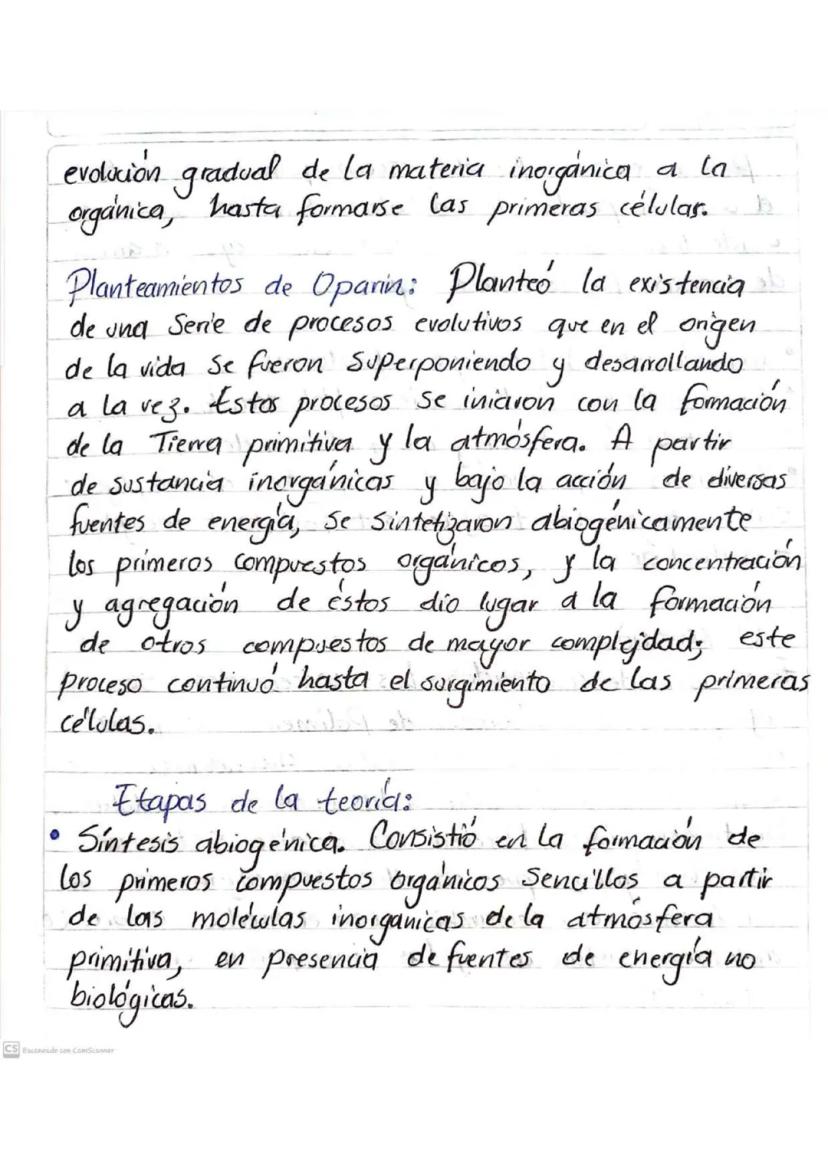 evolución gradual de la materia inorgánica a la
orgánica, hasta formarse las primeras células.
Planteamientos de Oparin: Planteó la existencia
de una Serie de procesos evolutivos que en el origen
de la vida se fueron superponiendo y desarrollando
a la vez. Estos procesos se iniciaron con la formación
de la Tierra primitiva y la atmósfera. A partir
de sustancia inorgánicas y bajo la acción de diversas
fuentes de energía, se sintetizaron abiogénicamente
los primeros compuestos orgánicos, y la concentración
y agregación de éstos dio lugar a la formación
de otros compuestos de mayor complejdad; este
proceso continuó hasta el surgimiento de las primeras
células.
Etapas de la teoría:
• Síntesis abiogénica. Consistió en la formación de
los primeros compuestos orgánicos sencillos a partir
de las moléculas inorganicas de la atmósfera
primitiva, en presencia de fuentes de energía no
biológicas.
CS Escaneado con CamScanner